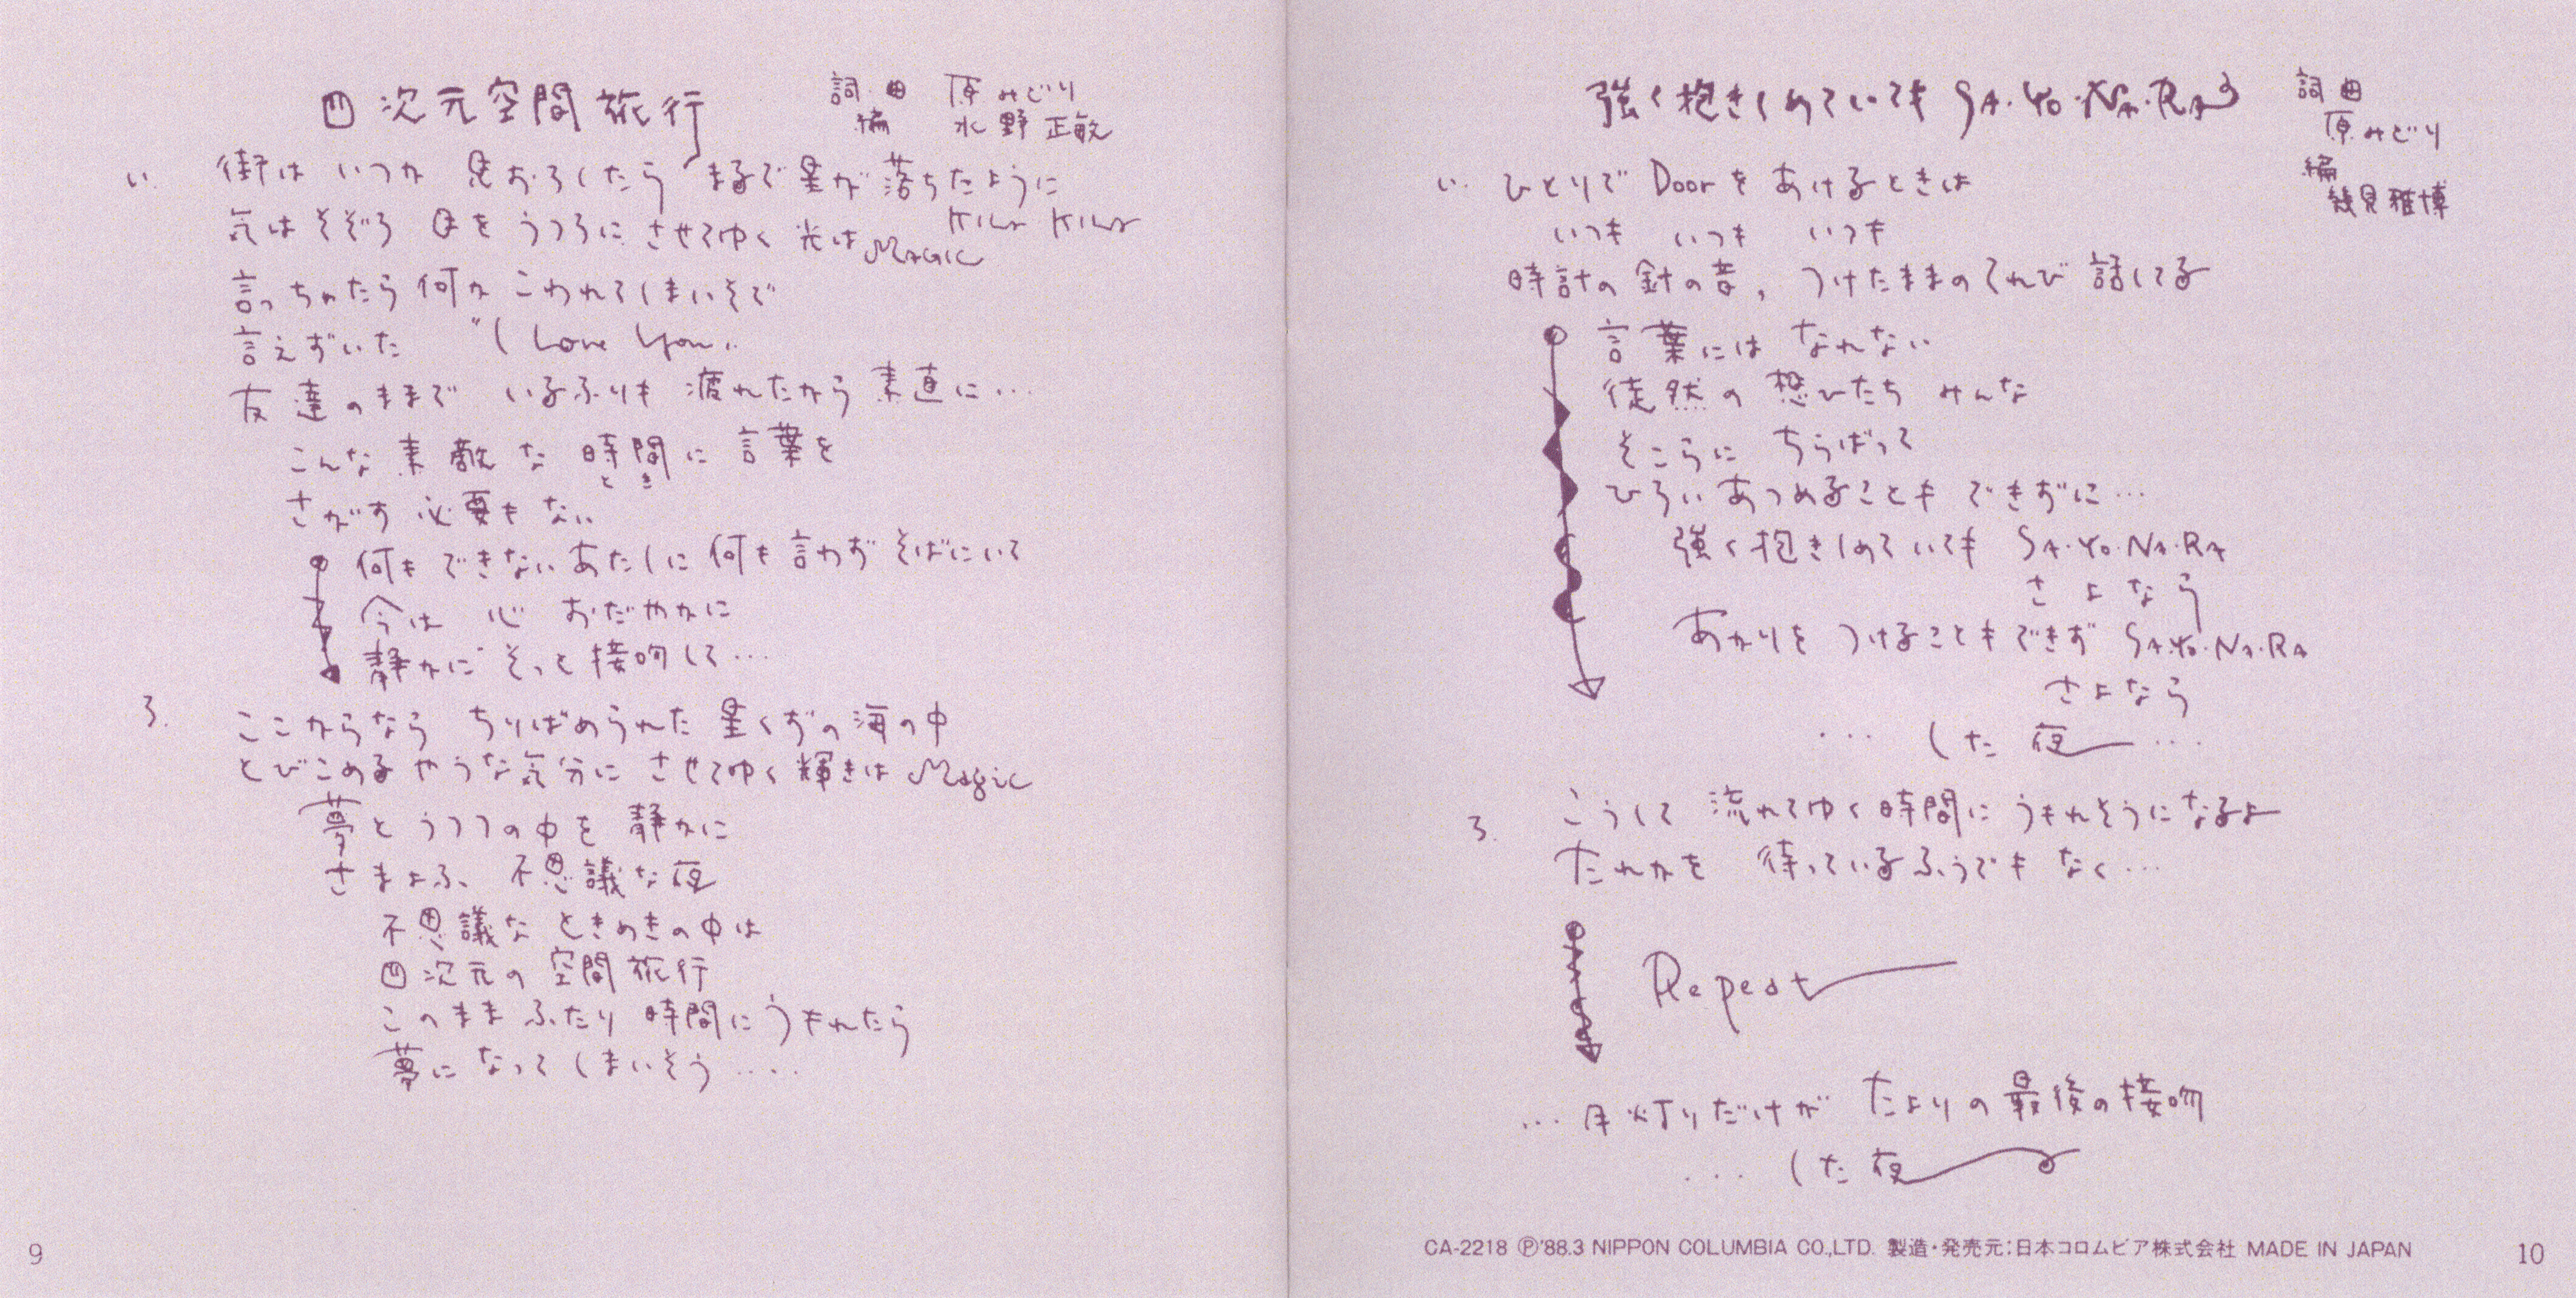 四次元空間旅行
詞・曲 原みどり
編 水野正敏
い. 街は いつか 見おろしたら まるで星が落ちたように
KILA KILA
気はそぞろ 目を うつろに させてゆく 光は MAGIC
言っちゃたら何か こわれてしまいそで
言えずいた "I Love You"
友達のままで いるふりも 疲れたから 素直に…
こんな 素敵な 時間に 言葉を
とき
さがす 必要も ない
何も できない あたしに 何も 言わず そばにいて
今は 心 おだやかに
静かに そっと 接吻して…
ろ. ここからなら ちりばめられた 星くずの 海の中
とびこめるやうな気分に させてゆく 輝きは Magic
夢と うつつの中を 静かに
さまよふ、不思議な夜
不思議な ときめきの中は
四次元の 空間旅行
このまま ふたり 時間に うもれたら
夢に なって しまいそう ‥‥
9
強く抱きしめていても SA・YO・NA・RA
詞 曲
原みどり
編
幾見雅博
い. ひとりで Doorを あけるときは
いつも いつも いつも
時計の 針の音、 つけたままの てれび 話してる
言葉には なれない
徒然の 想ひたち みんな
そこらに ちらばって
ひろい あつめることも できずに…
強く抱きしめていても SA・YO・NA・RA
さよなら
あかりを つけることもできず SA・YO・NA・RA
さよなら
… した 夜 …
ろ. こうして 流れてゆく 時間に うもれそうになるよ
たれかを 待っているふうでも なく…
Repeat
… 月灯りだけが たよりの 最後の接吻
… した 夜
CA-2218 Ⓟ'88.3 NIPPON COLUMBIA CO.,LTD. 製造・発売元:日本コロムビア株式会社 MADE IN JAPAN
10